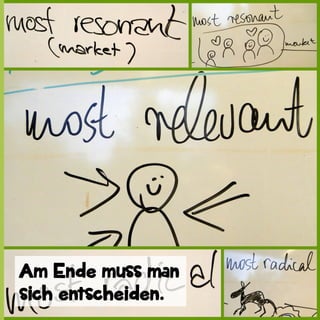 most resonant
(market)
most resonant
market
most relevant
most radical
Am Ende muss man
sich entscheiden.
most radical